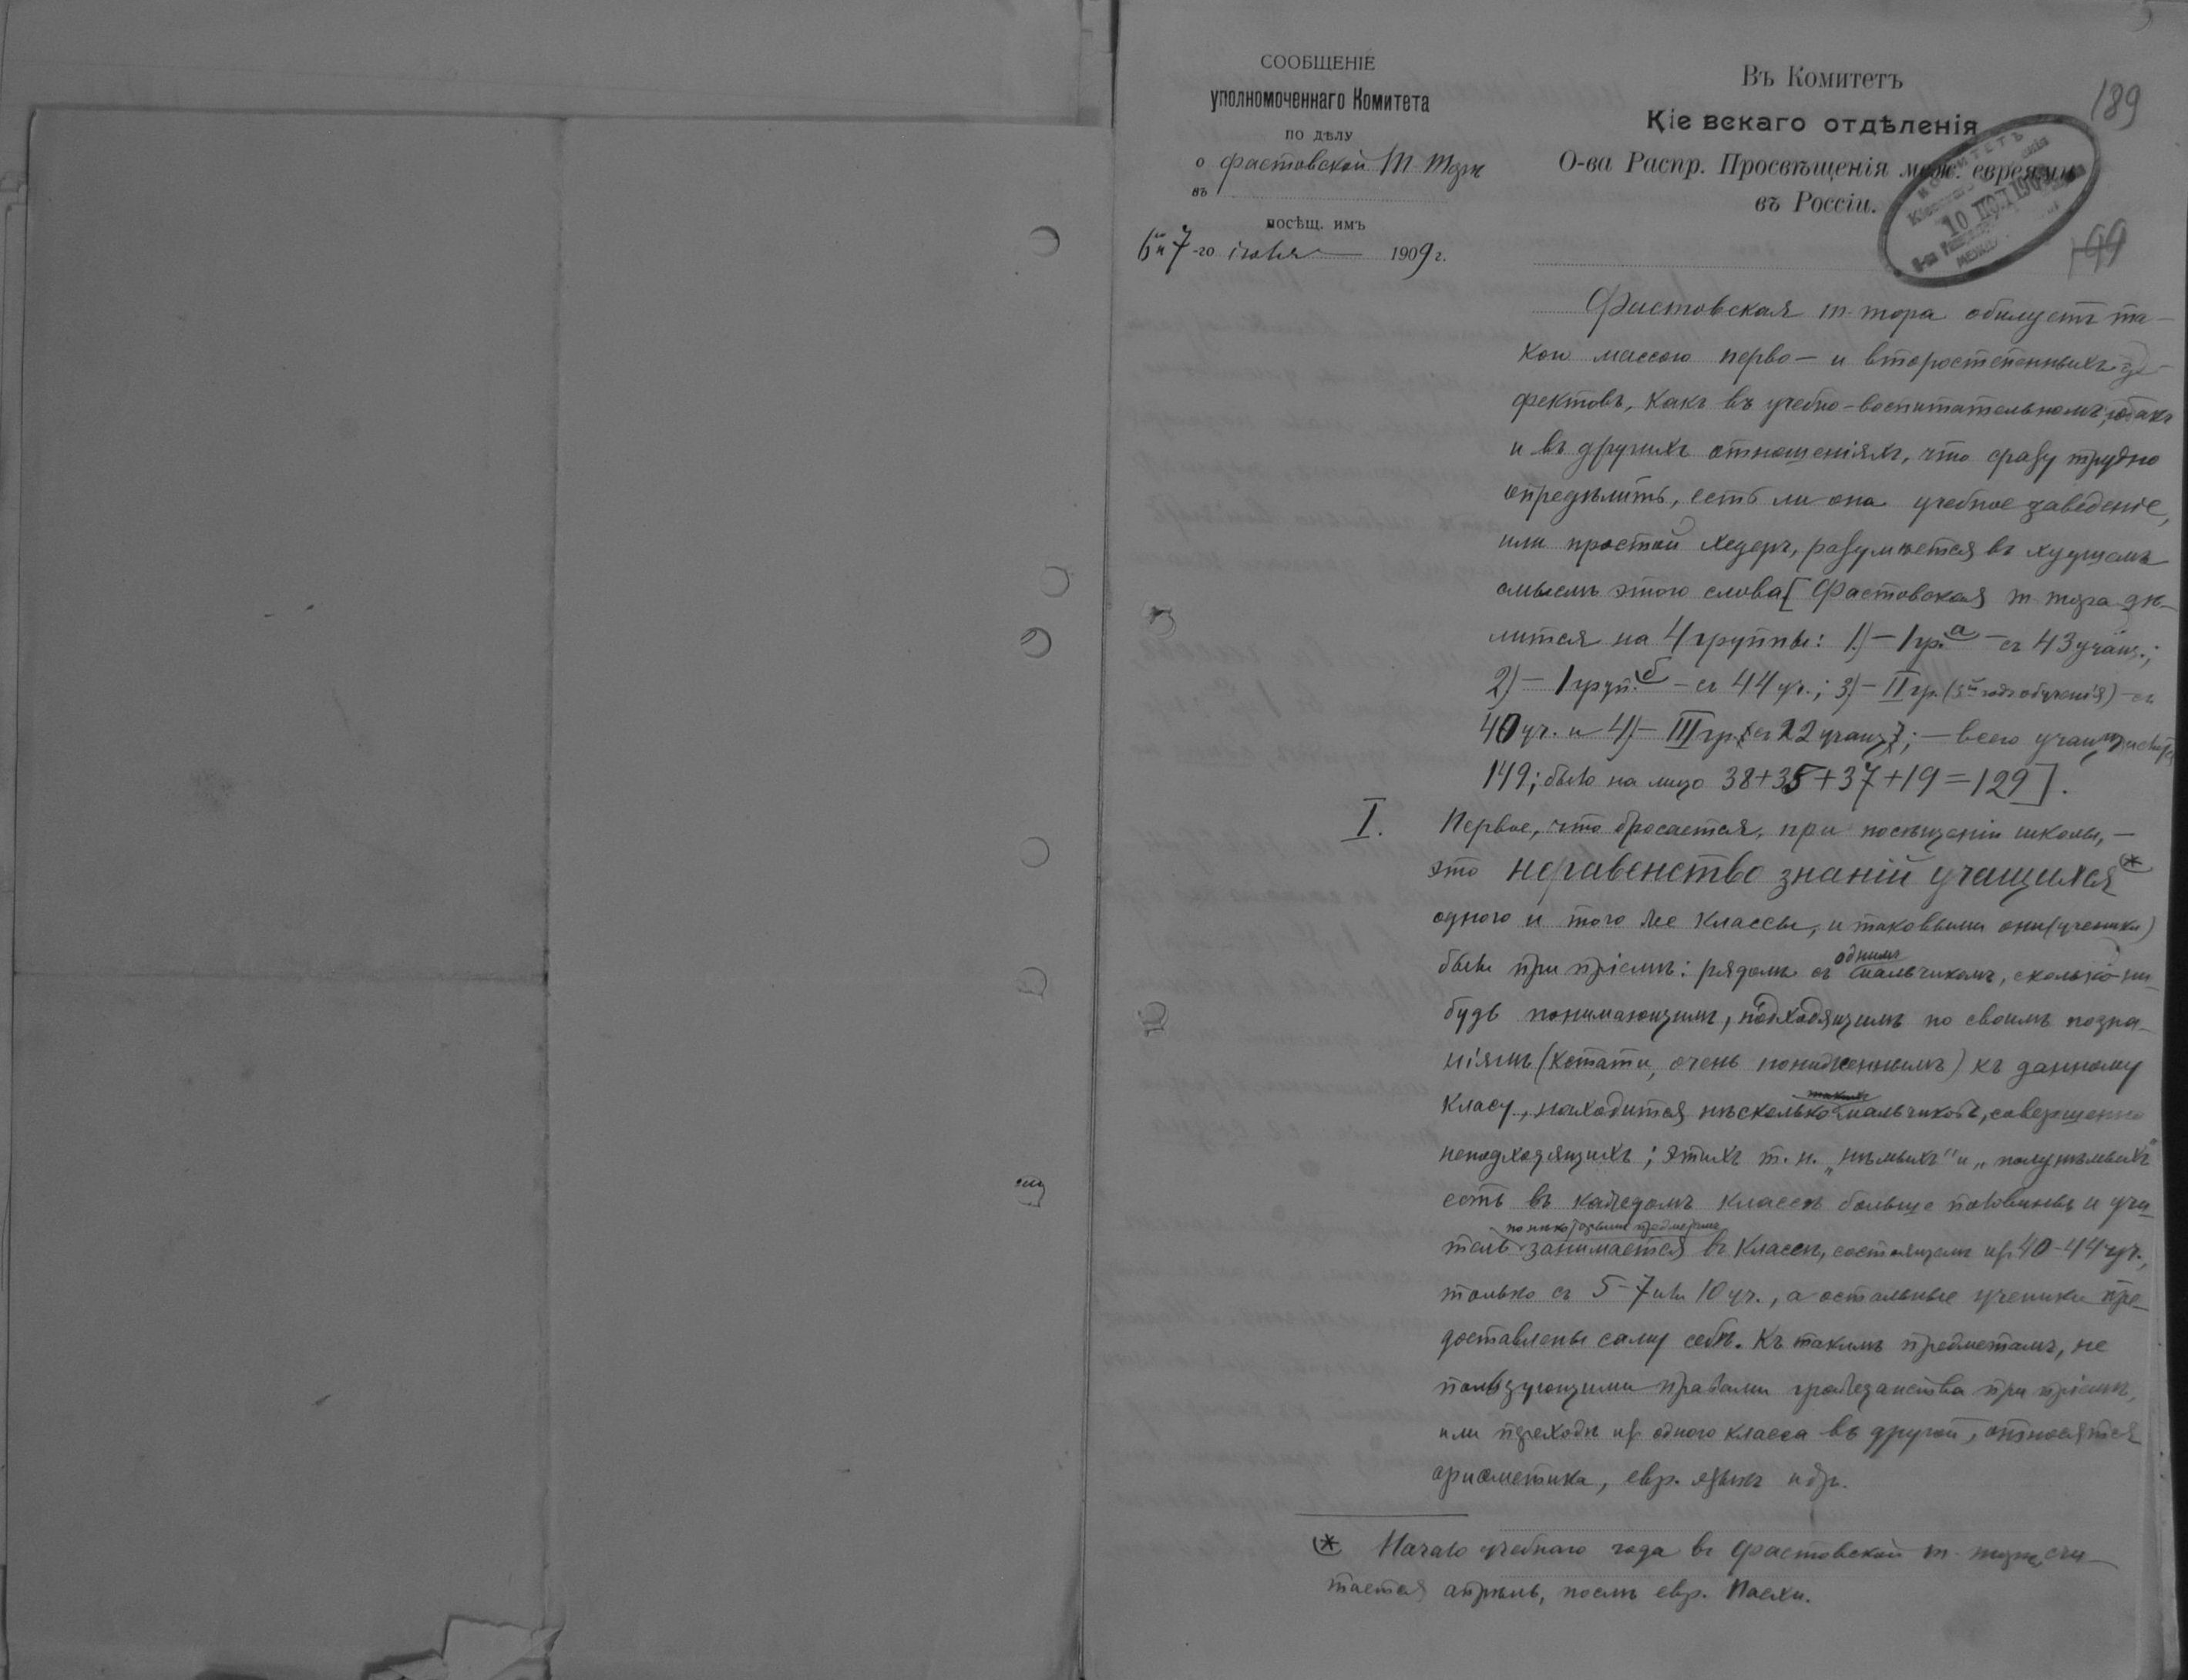 СООБЩЕНІЕ
уполномоченнаго Комитета
ПО ДѢЛУ
о фастовской Т Торѣ
въ
посѣщ. имъ
6 и 7-го іюля 1909 г.
Въ Комитетъ
Кіевскаго отдѣленія
О-ва Распр. Просвѣщенія меж. евреями
въ Россіи.
189
КОМИТЕТЪ
10 ІЮЛ 1909
199
Фастовская т-тора обилуетъ та-
кою массою перво- и второстепенныхъ де-
фектовъ, какъ въ учебно-воспитательномъ, такъ
и въ другихъ отношеніяхъ, что сразу трудно
опредѣлить, есть ли она учебное заведеніе,
или простой хедеръ, разумѣется въ худшемъ
смыслѣ этого слова [Фастовская т-тора дѣ-
лится на 4 группы: 1)- I гр. а - съ 43 учащ.;
2)- I груп. б - съ 44 уч.; 3)- II гр. (3й годъ обученія) - съ
40 уч. и 4)- III гр. съ 22 учащ.; - всего учащихся
149; было на лицо 38+35+37+19=129].
I. Первое, что бросается, при посѣщеніи школы, -
это неравенство знаній учащихся (*
одного и того же классы, и таковыми они (ученики)
были при пріемѣ: рядомъ съ однимъ мальчикомъ, сколько-ни-
будь понимающимъ, подходящимъ по своимъ позна-
ніямъ (кстати, очень пониженнымъ) къ данному
класу, находится нѣсколько такихъ мальчиковъ, совершенно
неподходящихъ; этихъ т. н. „нѣмыхъ" и „полунѣмыхъ"
есть въ каждомъ классѣ больше половины и учи-
по нѣкоторымъ предметамъ
тель занимается въ классѣ, состоящемъ из 40-44 уч.,
только съ 5-7 или 10 уч., а остальные ученики пре-
доставлены саму себѣ. Къ такимъ предметамъ, не
пользующими правами гражданства при пріемѣ,
или переходѣ из одного класса въ другой, относятся
ариѳметика, евр. языкъ и др.
(* Начало учебнаго года въ фастовской т-торѣ счи-
тается апрѣль, послѣ евр. Пасхи.